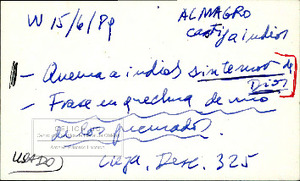 W 15/6/89
ALMAGRO
castiga indios
- Quema a indios sin temor de Dios
- Frase en quechua de uno
de los quemados.
USADO
Cieza, Desc. 325